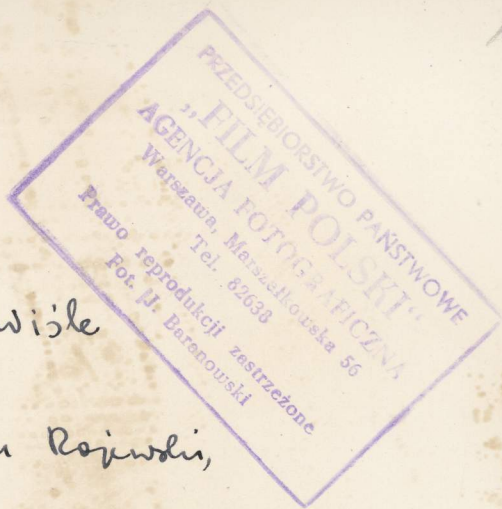 PRZEDSIĘBIORSTWO PAŃSTWOWE
„FILM POLSKI“
AGENCJA FOTOGRAFICZNA
Warszawa, Marszałkowska 56
Tel. 82638
Prawo reprodukcji zastrzeżone
Fot. J. Baranowski
Wiśle
Rajewski,